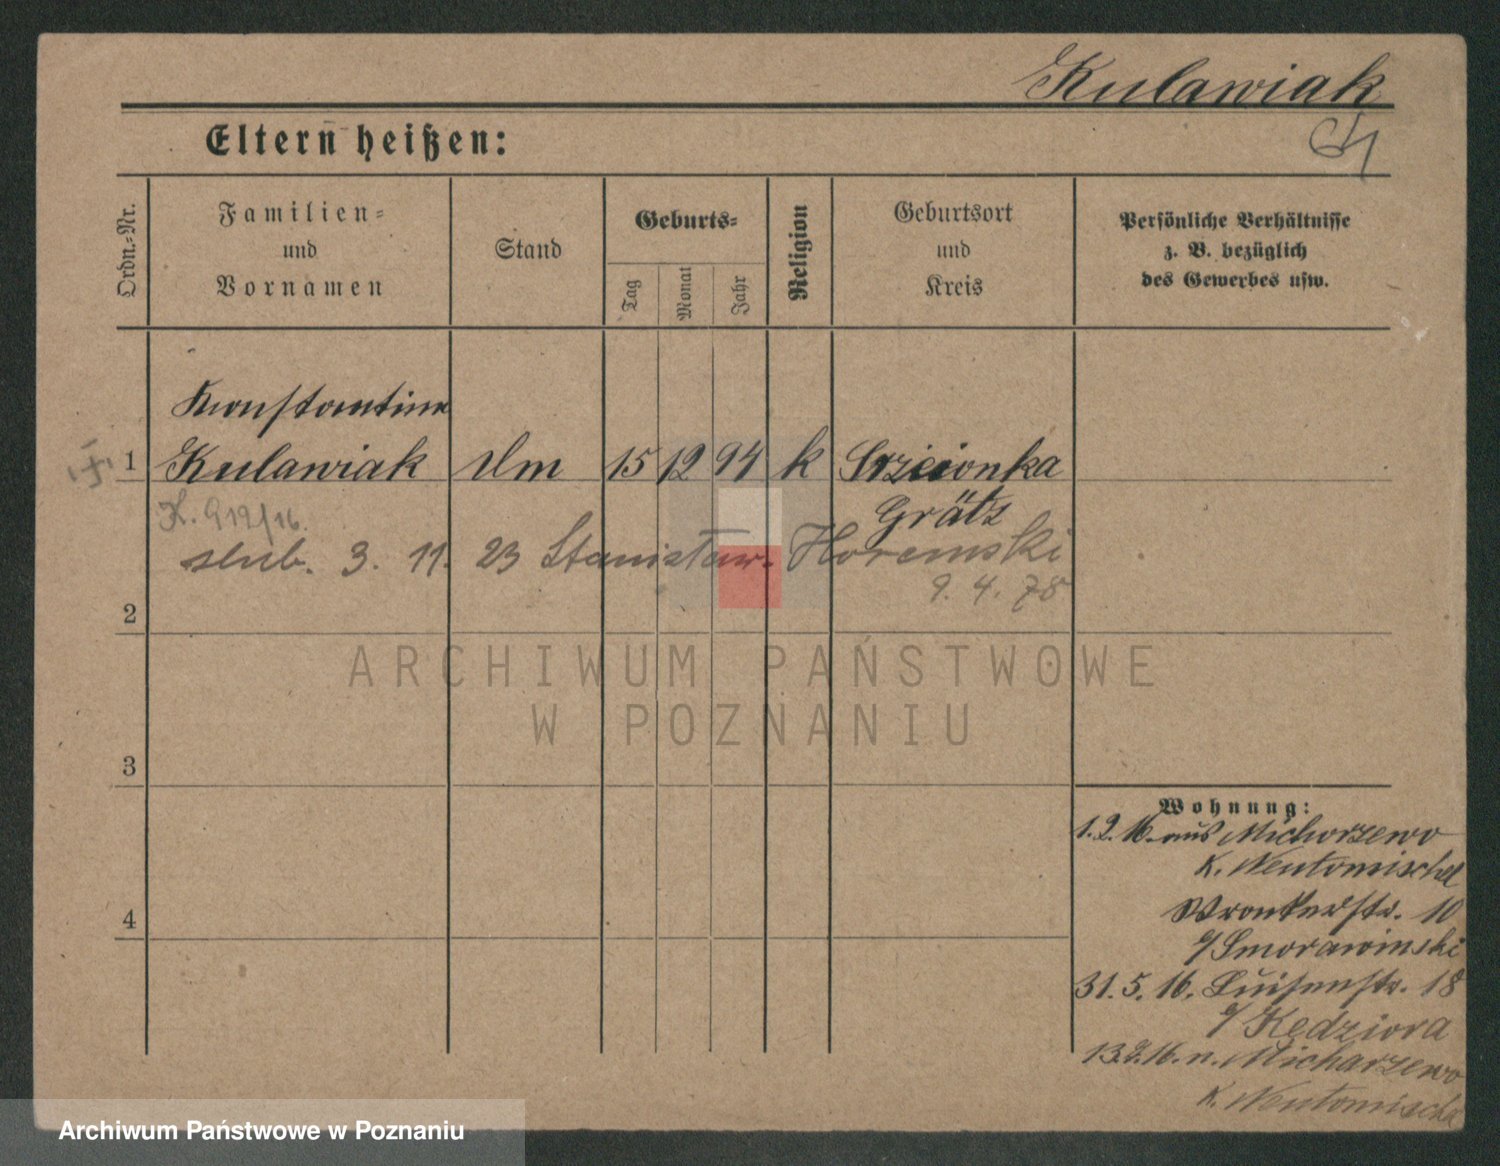 Kulawiak
Eltern heißen:
Ordn.-Nr.
Familien-
und
Vornamen
Stand
Geburts-
Tag
Monat
Jahr
Religion
Geburtsort
und
Kreis
Persönliche Verhältnisse
z. B. bezüglich
des Gewerbes usw.
Konstantine
1 Kulawiak Dm 15 12 94 k
Grätz
K. 919/16.
slub. 3. 11. 23 Stanisław. Horemski
9. 4. 78
2
ARCHIWUM PAŃSTWOWE
W POZNANIU
3
Wohnung:
1.2.16. aus Michorzewo
K. Neutomischel
Wronkerstr. 10
b/Smorawinski
31. 5. 16. Luisenstr. 18
b/Kędziora
13.2.16. n. Michorzewo
K. Neutomischel
4
Archiwum Państwowe w Poznaniu